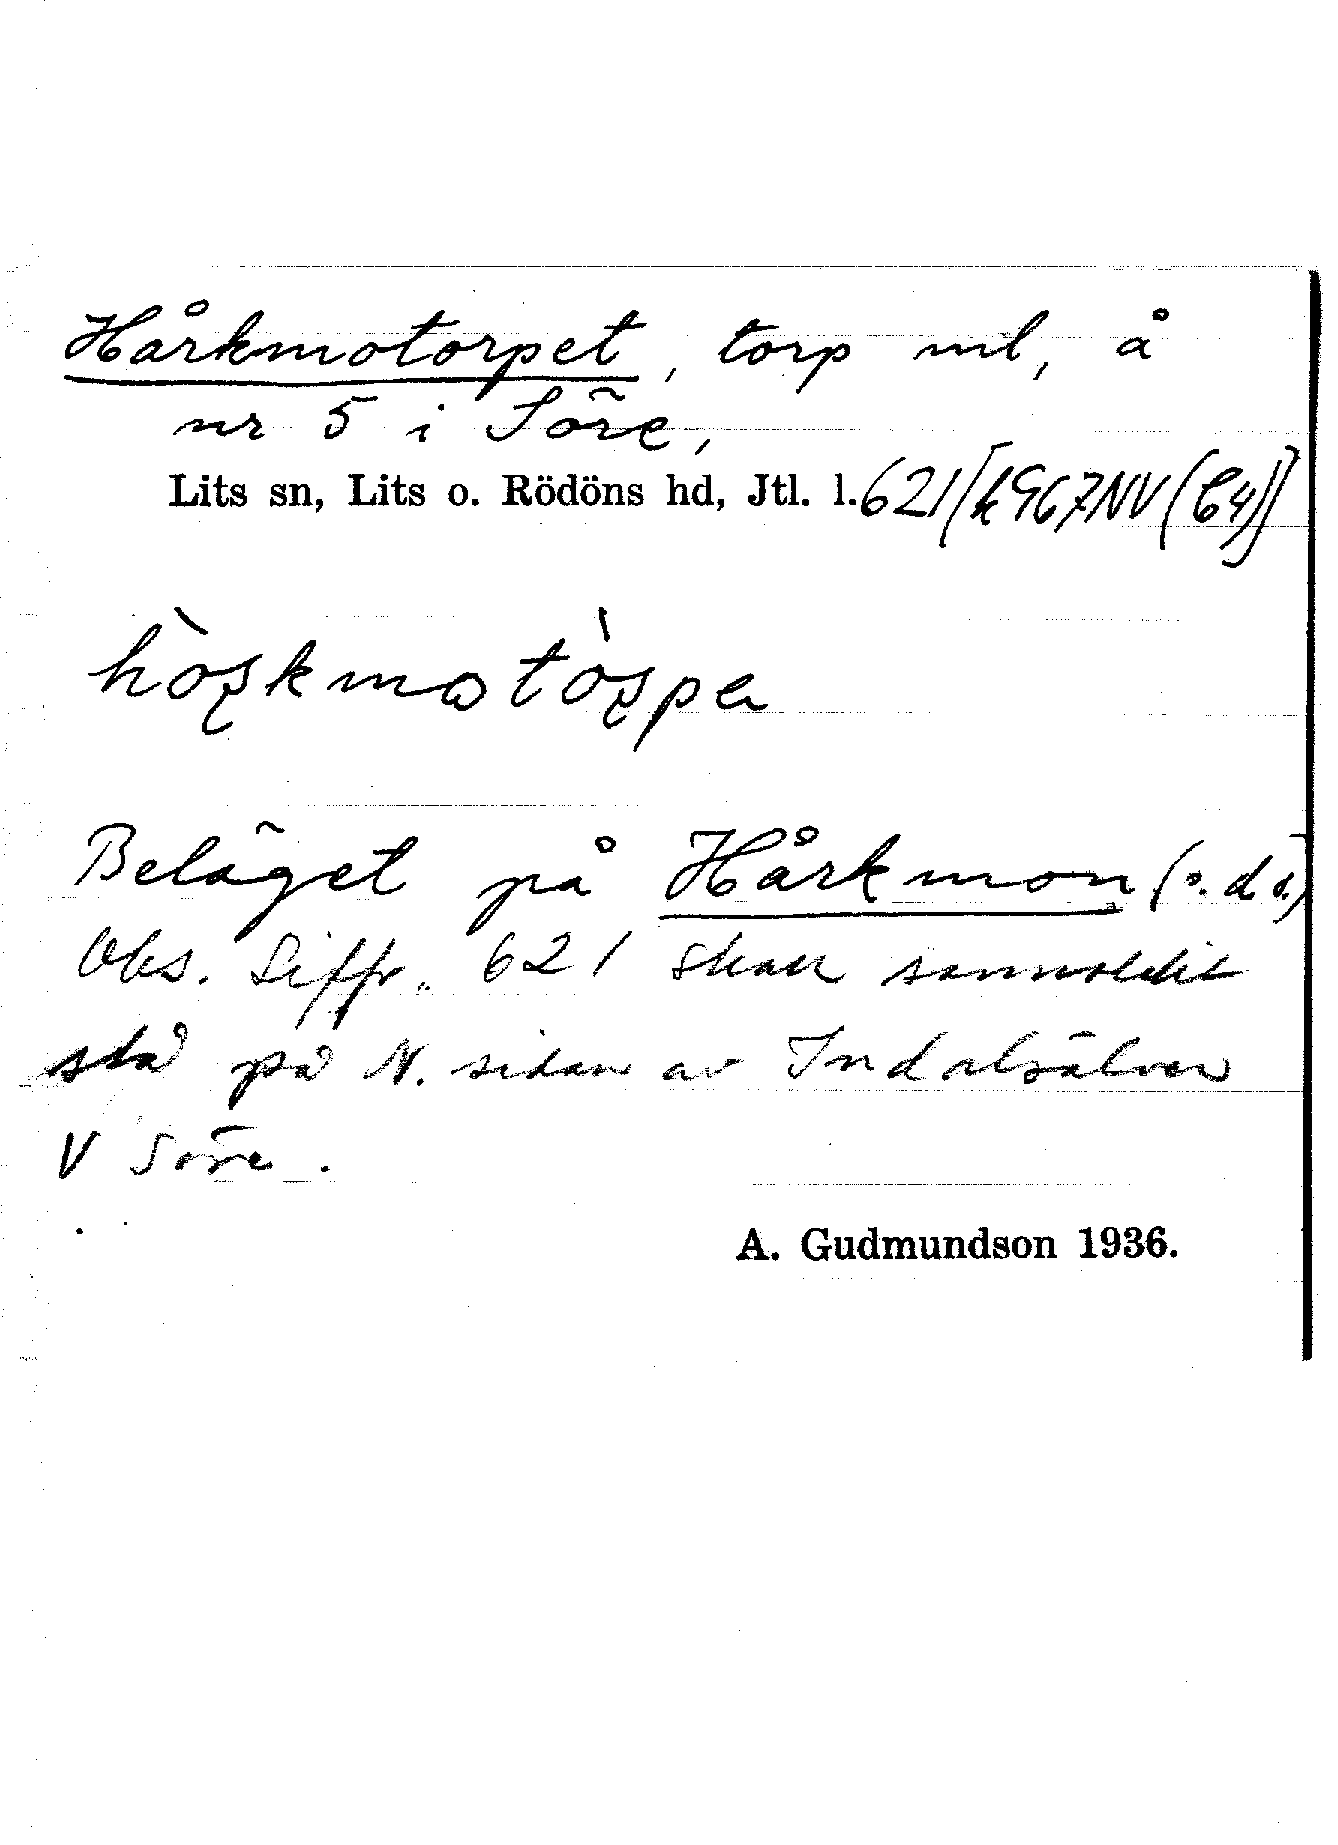 Hårkmotorpet, torp ml, å
nr 5 i Söre,
Lits sn, Lits o. Rödöns hd, Jtl. l. 621 [k 967 NV (C4)]
Beläget på Hårkmon (s. d o.)
Obs. Siffr. 621 skall sannolikt
stå på N. sidan av Indalsälven
V Söre.
A. Gudmundson 1936.